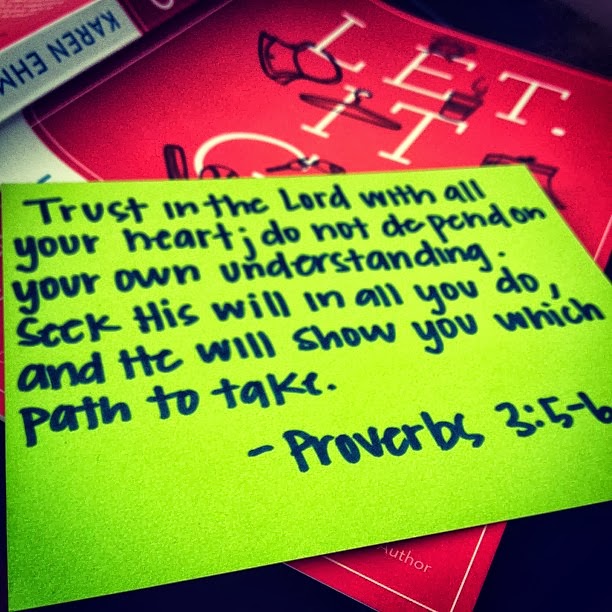 KAREN EHM
LET.
IT
Trust in the Lord with all
your heart; do not depend on
your own understanding.
Seek His will in all you do,
and He will show you which
path to take.
- Proverbs 3:5-6
Author